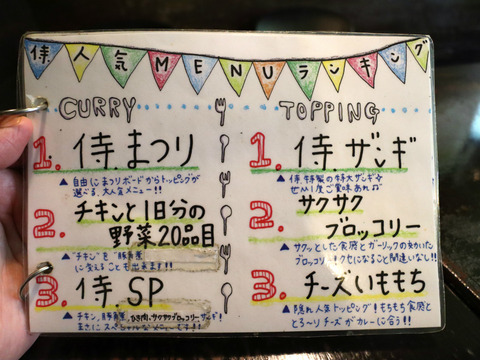 侍人気MENUランキング
CURRY
1. 侍.まつり
▲自由にまつりボードからトッピングが
選べる、大人気メニュー!!
2. チキンと1日分の
野菜20品目
▲"チキン"を"豚角煮"
に変えることも出来ます!!
3. 侍.SP
▲チキン,豚角煮,ひき肉,サクサクブロッコリー,ザンギ!
まさにスペシャルなメニューです!!
TOPPING
1. 侍.ザンギ
▲侍.特製の特大ザンギ☆
ぜひ1度ご賞味あれ♫
2. サクサク
ブロッコリー
▲サクッとした食感とガーリックの効いた
ブロッコリー!クセになること間違いなし!!
3. チーズいももち
▲隠れ人気トッピング!もちもち食感と
とろ〜りチーズがカレーに合う!!